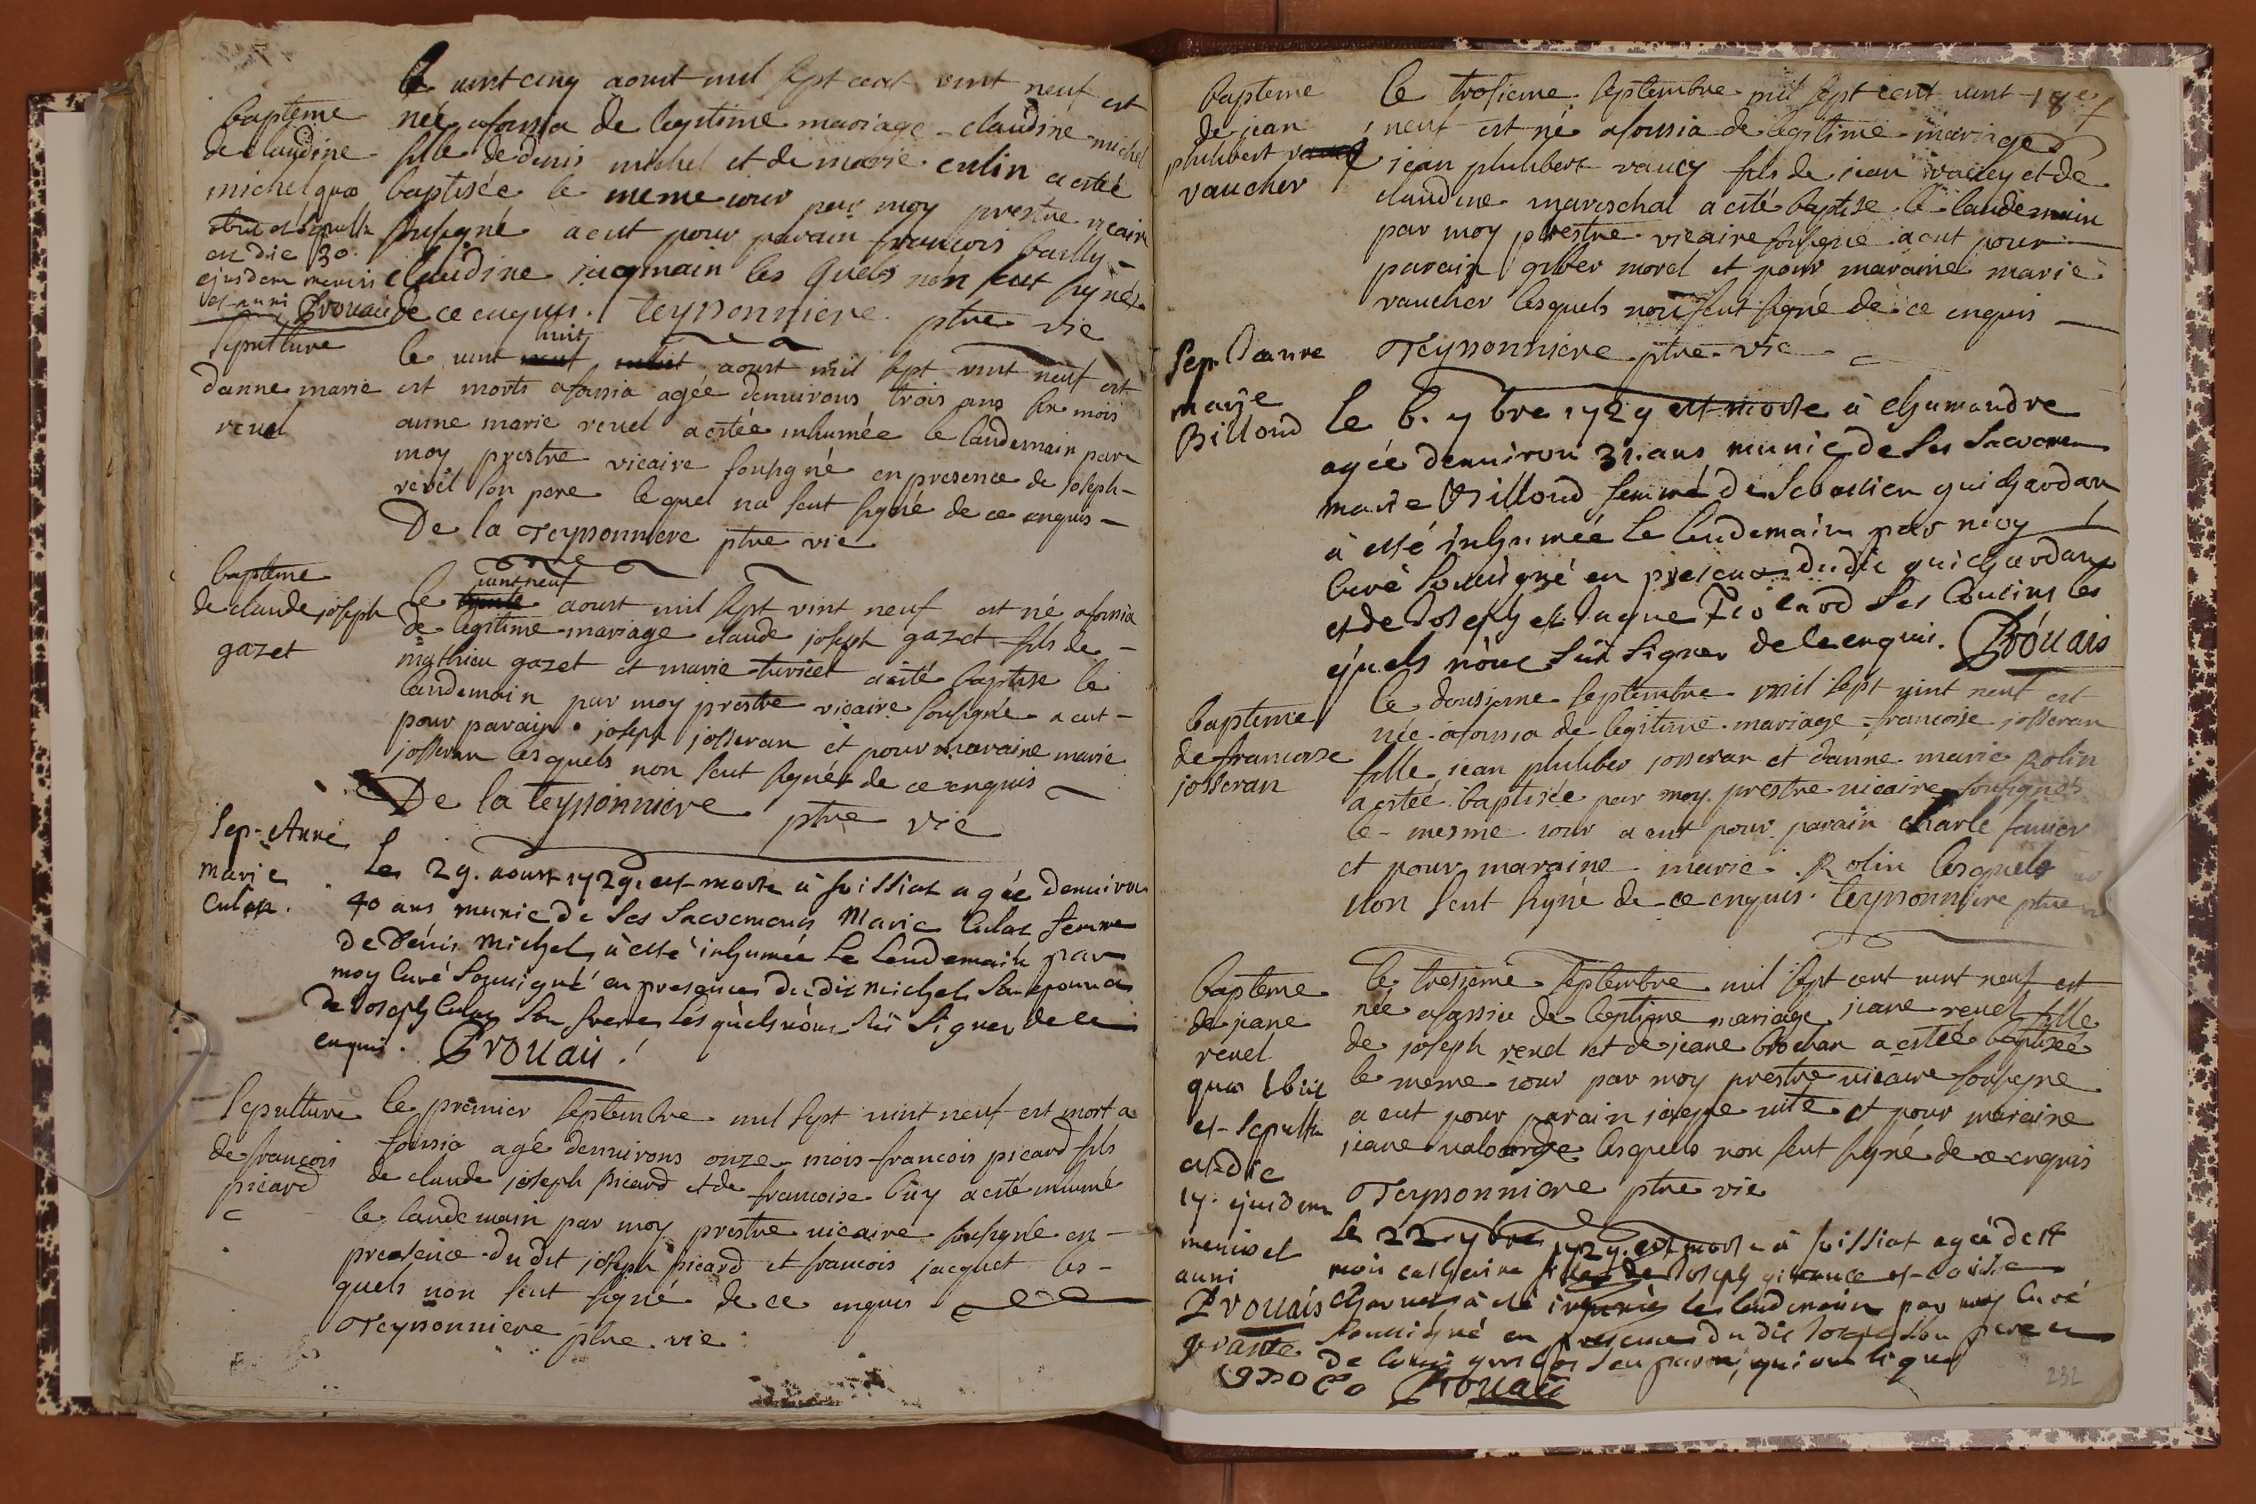 le vint cinq aoust mil sept cent vint neuf est
née a foissia de legitime mariage claudine michel
fille de denis michel et de marie culin a estée
baptisée le meme iour par moy prestre vicaire
sousigné a eut pour parain francois bailly
claudine iaqmain les quels non seut signés
de ce enquis. teyssonniere ptre vic
bapteme
de claudine
michel quæ
obiit et sepulta
est die 30
ejusdem mensis
et anni Provais
sepulture
danne marie
revel
le vint huit aoust mil sept vint neuf est
est morts a foissia agée denvirons trois ans six mois
anne marie revel a estée inhumée le landemain par
moy prestre vicaire sousigné en presence de Joseph
revel son pere lequel na seut signé de ce enquis
De la Teyssonniere ptre vic
bapteme
de claude joseph
gazet
le vint neuf aoust mil sept vint neuf est né a foissia
de legitime mariage claude joseph gazet fils de
mathieu gazet et marie turiet a esté baptise le
landemain par moy prestre vicaire sousigné a eut
pour parain joseph josseran et pour maraine marie
josseran lesquels non seut signér de ce enquis
De la teyssonniere ptre vic
Sep. Anne
marie
culas.
Le 29. aoust 1729. est morte à foissiat agée denviron
40 ans munie de ses sacremens Marie Culas femme
de Dénis Michel, à esté inhumée le lendemain par
moy Curé soussigné en presence dudit Michel son epoux et
de Joseph Culas son frere lesquels nont sceü signer de ce
enquis. Provais
Sepulture
de francois
picard
le premier septembre mil sept vint neuf est mort a
foissia agé denvirons onze mois francois picard fils
de claude joseph picard et de francoise buy a esté inhumé
le landemain par moy prestre vicaire sousigné en
presence dudit joseph picard et francois jacquet les
quels non seut signé de ce enquis
Teyssonniere ptre vic
187
bapteme
de jean
philibert
vaucher
le troisieme septembre mil sept cent vint
neuf est né a foissia de legitime mariage
jean philibert vaucy fils de jean vaucy et de
claudine mareschal a esté baptise le landemain
par moy prestre vicaire sousigne a eut pour
parain giber morel et pour maraine marie
vaucher lesquels non seut signé de ce enquis
Teyssonniere ptre vic
Sep. Danne
marie
Billoud
Le 6. 7bre 1729 est morte à Chamandre
agée denviron 31. ans munie de ses sacremens
marie Billoud femme de Sebastien guichardan
à esté inhumée le lendemain par moy
Curé soussigné en presence dudit guichardan
et de Joseph et Jaque ses Cousins les
quels nont sceü signer de ce enquis. Provais
bapteme
de francoise
josseran
le dousieme septembre mil sept vint neuf est
née a foissia de legitime mariage francoise josseran
fille jean philiber josseran et danne marie Rolin
a estée baptisée par moy prestre vicaire sousigné
le mesme iour a eut pour parain charle
et pour maraine marie Rolin lesquels
non seut signé de ce enquis. teyssonniere ptre vic
bapteme
de jeane
revel
quæ obiit
et sepulta
est die
17. ejusdem
mensis et
anni
Provais
gerante
le tresieme septembre mil sept cent vint neuf est
née a fassia de legitime mariage jeane revel fille
de joseph revel et de jeane brochan a estée baptisée
le meme iour par moy prestre vicaire sousigne
a eut pour parain joseph vité et pour maraine
jeane lesquels non seut signé de ce enquis
Teyssonniere ptre vic
Le 22 7bre 1729. est morte à foissiat agée de
mois catherine fille de Joseph et
à esté inhumée le lendemain par moy Curé
soussigné en presence dudit Joseph son pere et
de son parain, qui ont signé
Provais
232